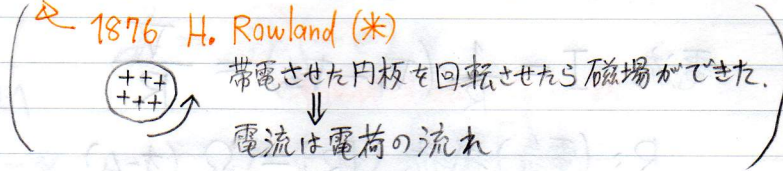 1876 H. Rowland (米)
+++
+++
帯電させた円板を回転させたら磁場ができた.
⇓
電流は電荷の流れ